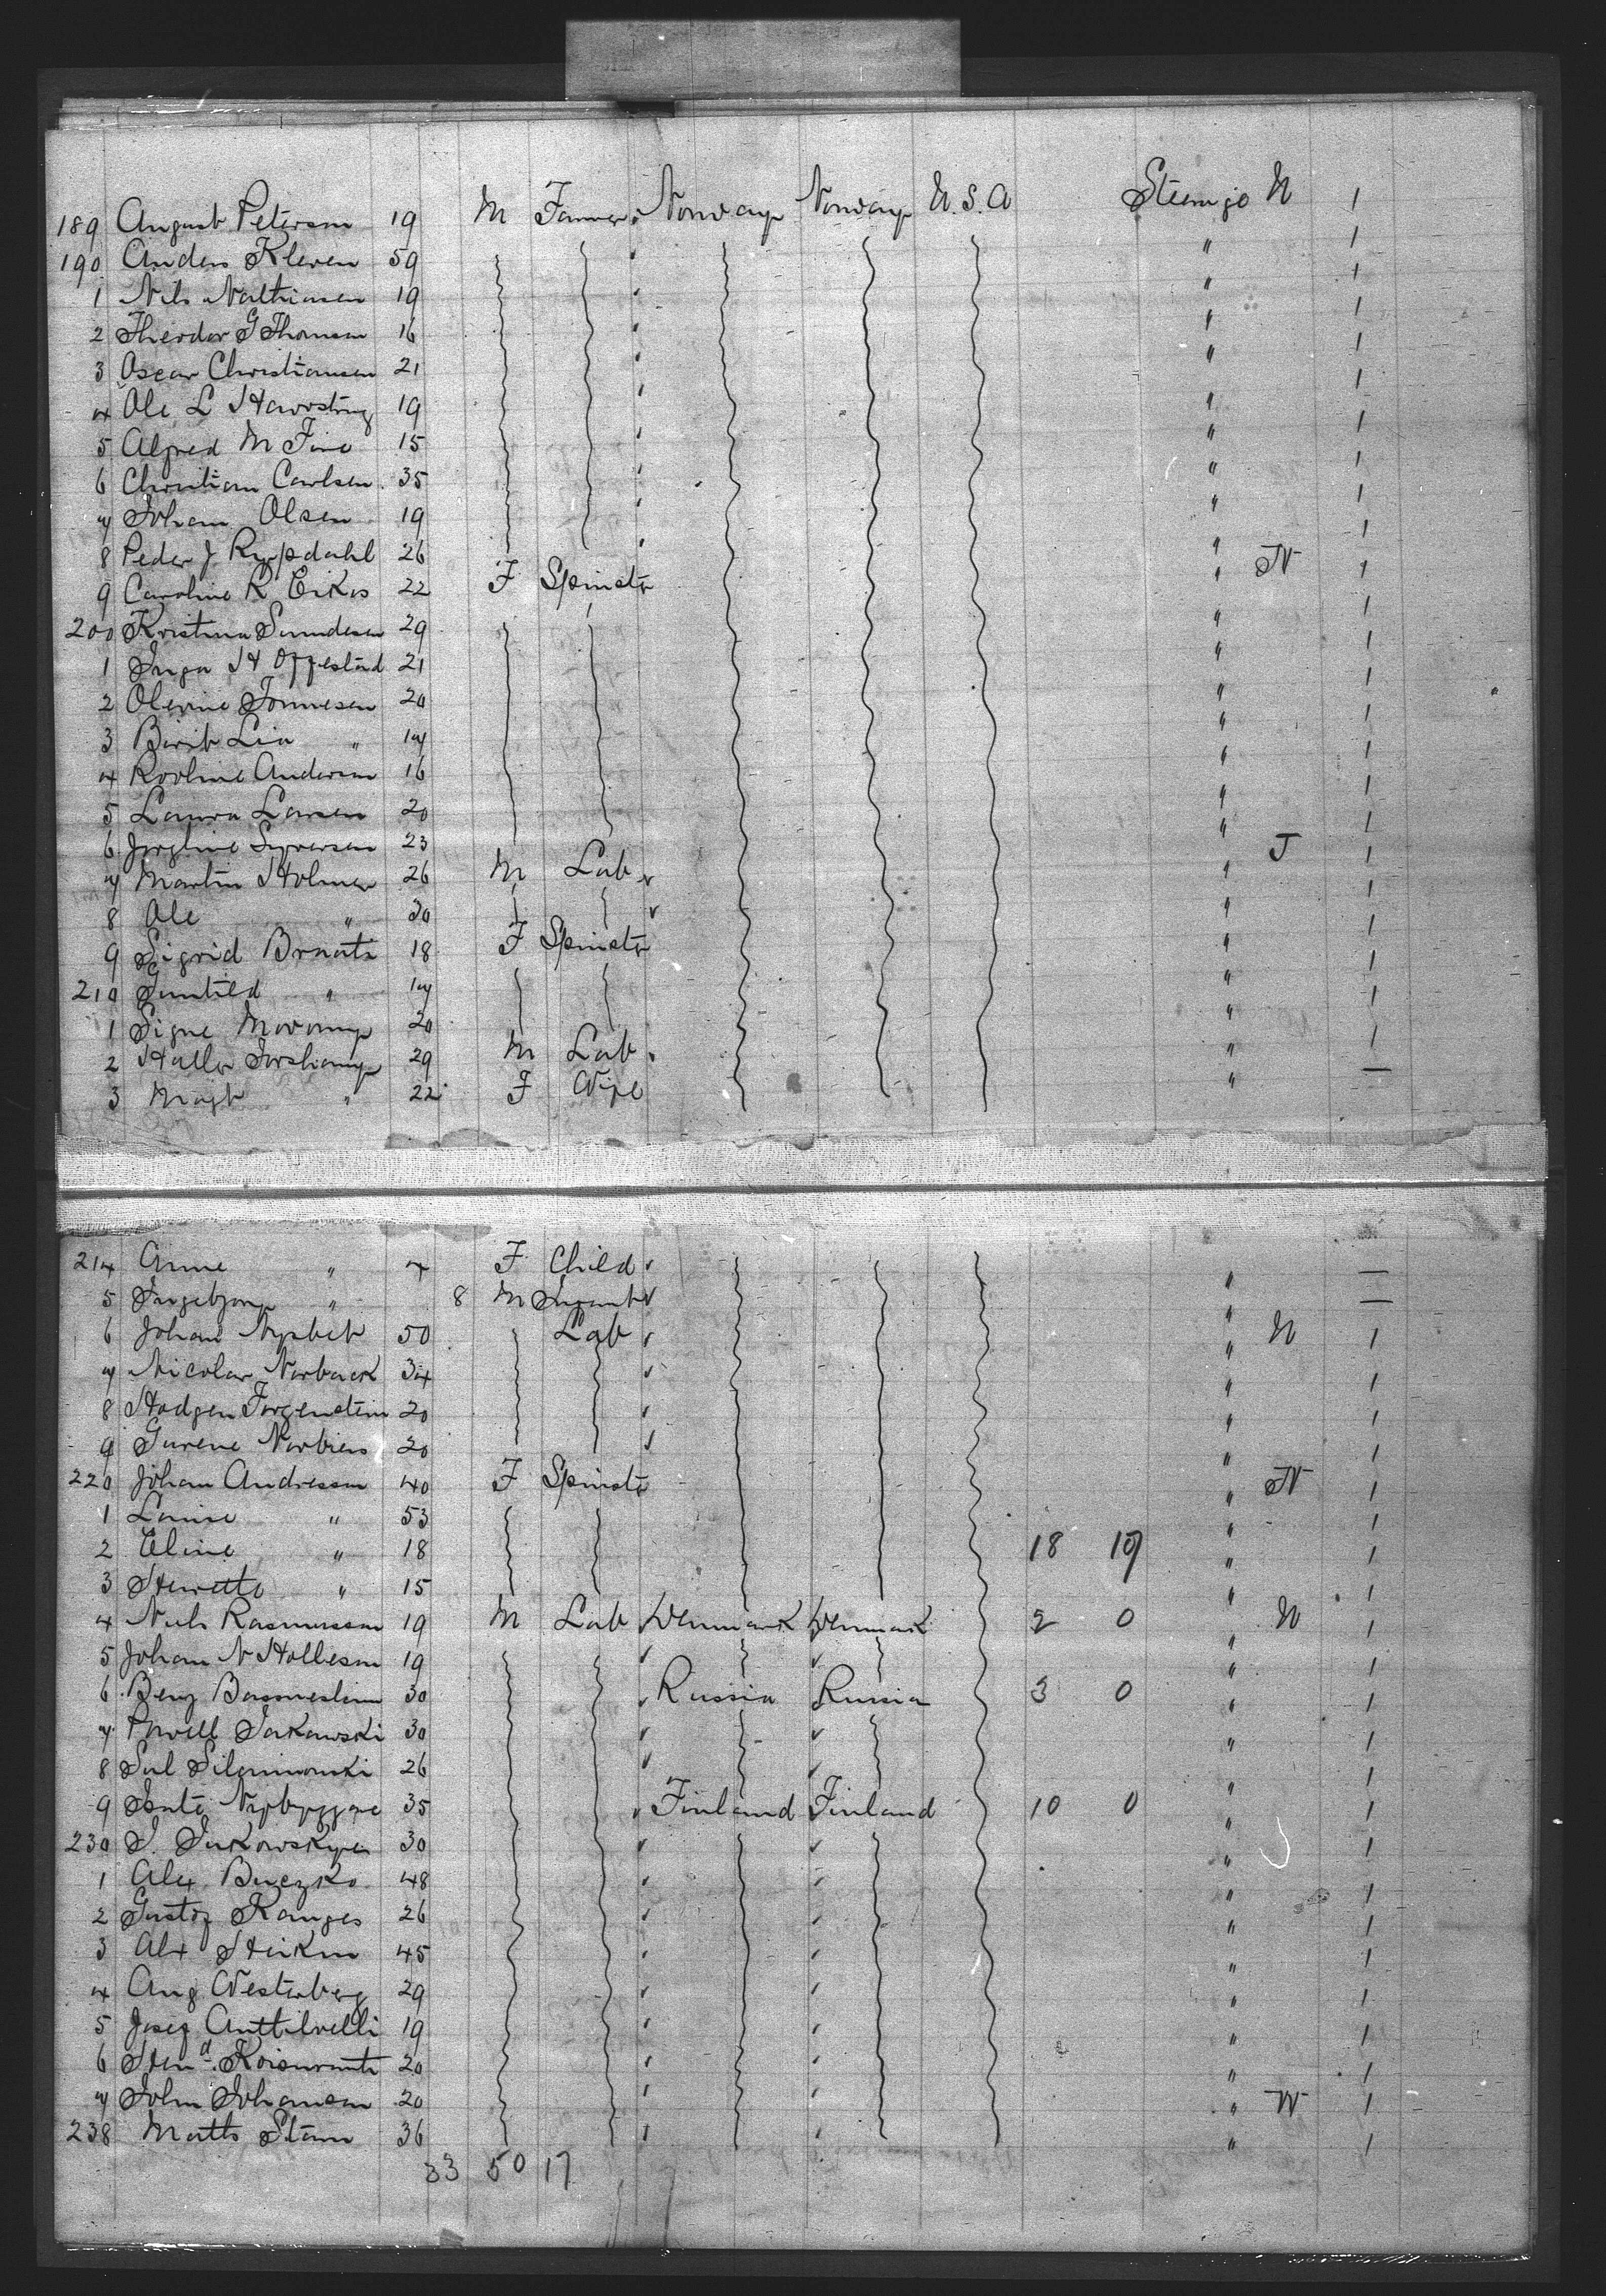 189 August Peterson 19 M Farmer Norway Norway U.S.A Steerage N 1
190 Anders Kleven 59 " 1
1 Nils Mathiasen 19 " 1
2 Theodor G Thomsen 16 " 1
3 Oscar Christiansen 21 " 1
4 Ole L 19 " 1
5 Alfred M 15 " 1
6 Christian Carlsen 35 " 1
7 Johan Olsen 19 " 1
8 Peder J Rypdahl 26 " 1
9 Caroline K 22 F Spinster " N 1
200 Kristina 29 " 1
1 Inga H Offestad 21 " 1
2 Olevine Tonnesen 20 " 1
3 Berit Lia " 17 " 1
4 Andersen 16 " 1
5 Laura Larsen 20 " 1
6 Syversen 23 " 1
7 Martin Holmen 26 M Lab " J 1
8 Ole " 20 " 1
9 Sigrid Braata 18 F Spinster " 1
210 Gunild " 17 " 1
1 Signe 20 " 1
2 29 M Lab " 1
3 " 22 F Wife " —
214 Anne " 4 F Child " —
5 Ingebjorg " 8 M Infant " —
6 Johan 50 Lab " N 1
7 Nicolai Norback 34 " 1
8 20 " 1
9 20 " 1
220 Johan Andresen 40 F Spinster " N 1
1 Louise " 53 " 1
2 Eline " 18 18 17 " 1
3 Henrette " 15 " 1
4 Niels Rasmussen 19 M Lab Denmark Denmark 2 0 " N 1
5 Johan N 19 " 1
6 Benj 30 Russia Russia 3 0 " 1
7 30 " 1
8 26 " 1
9 35 Finland Finland 10 0 " 1
230 30 " 1
1 Alex Buczko 48 " 1
2 Gustof Kanges 26 " 1
3 Alx 45 " 1
4 Aug Westerberg 29 " 1
5 Josef 19 " 1
6 20 " 1
7 John Johansen 20 " W 1
238 Matts Stam 36 " 1
33 50 17